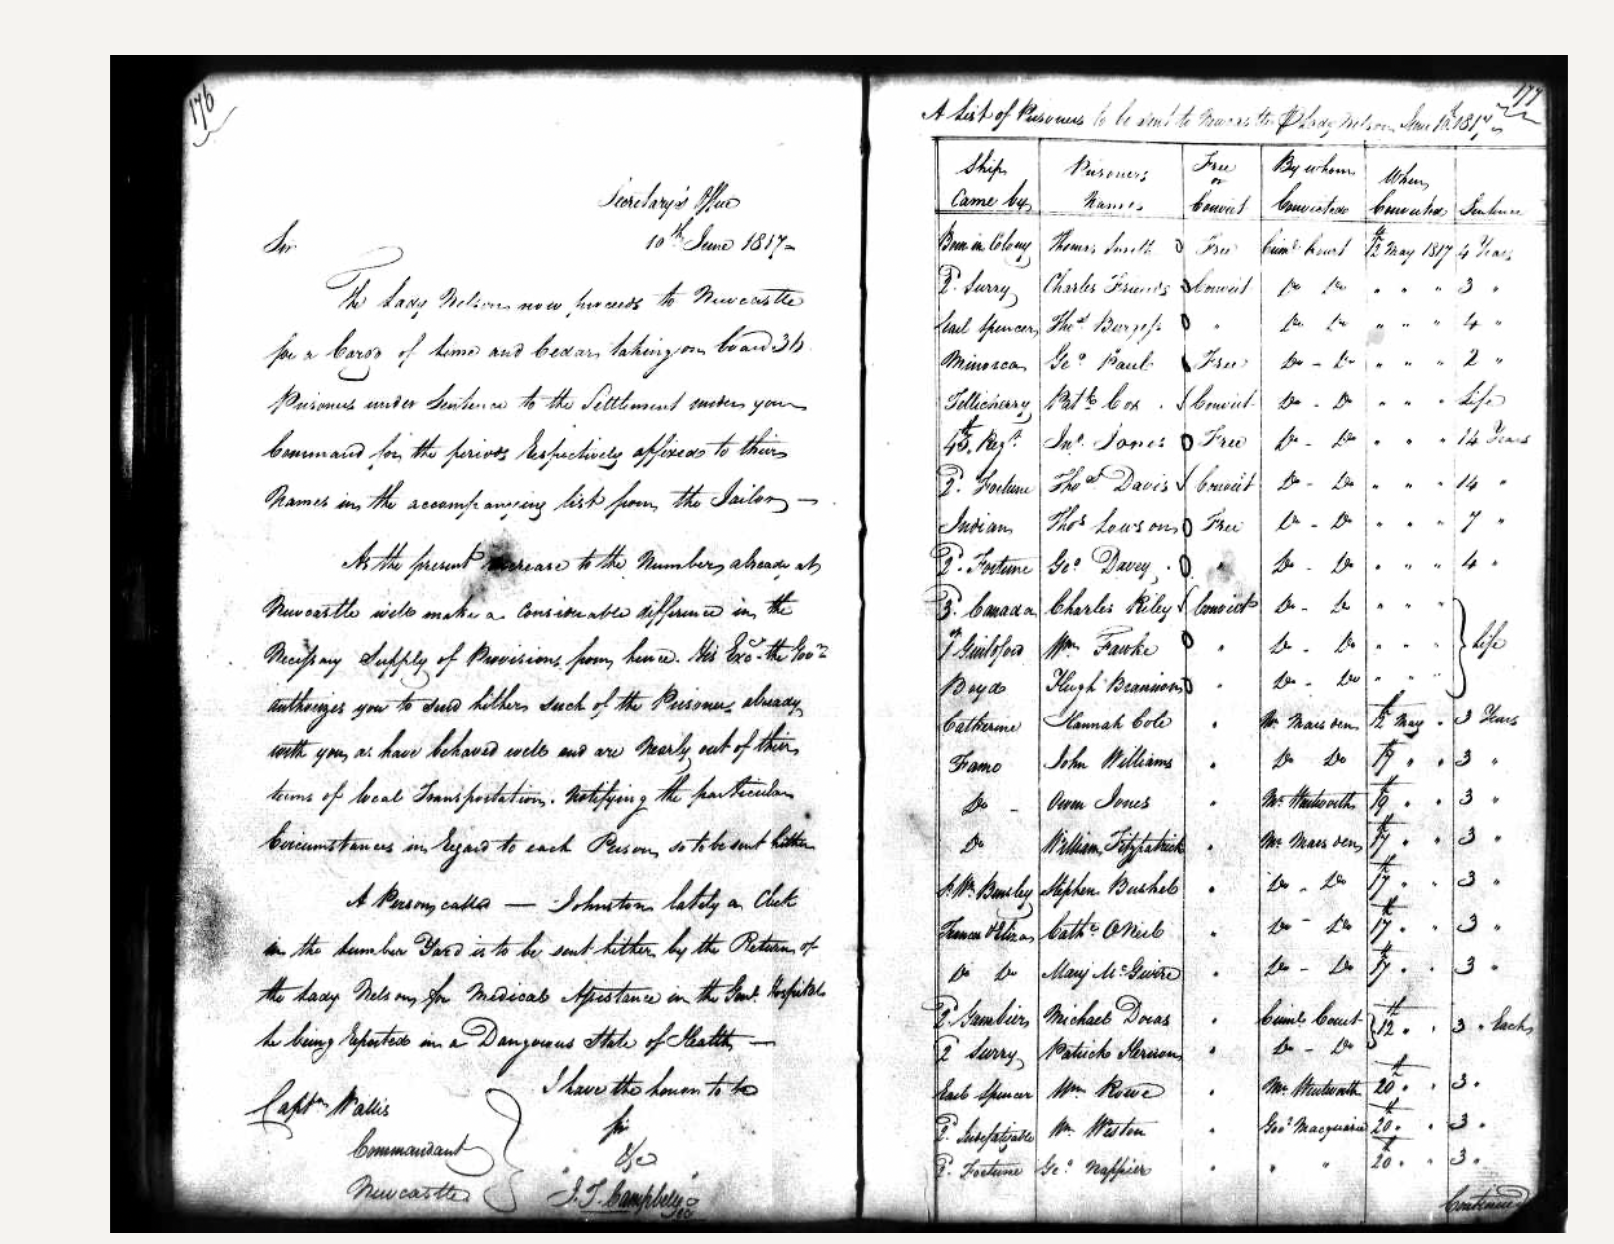 176
Secretary's Office
Sir 10th June 1817 –
The Lady Nelson now proceeds to Newcastle
for a Cargo of Lime and Cedar, taking on board 36
Prisoners under Sentence to the Settlement under your
Command for the periods Respectively affixed to their
Names in the accompanying list from the Jailor —
As the present increase to the Numbers already at
Newcastle will make a Considerable difference in the
Necessary Supply of Provisions from hence. His Excy. the Govr.
authorizes you to send hither such of the Prisoners already
with you as have behaved well and are Nearly out of their
terms of local Transportation. Notifying the particular
Circumstances in Regard to each Person so to be sent hither
A Person called — Johnston lately a Clerk
in the Lumber Yard is to be sent hither by the Return of
the Lady Nelson for Medical Assistance in the Govt. Hospital
he being Reported in a Dangerous State of Health —
I have the honor to be
Captn. Wallis
Sir
Commandant
&c
Newcastle
J. T. Campbell
177
A List of Prisoners to be sent to Newcastle P Lady Nelson June 10th 1817
Ship Came by Prisoners Names Free or Convict By whom Convicted When Convicted Sentence
Born in Colony Thomas Smith Free Criml. Court 12th May 1817 4 Years
2. Surry Charles Friends Convict Do Do " " " 3 "
Earl Spencer Thos. Burgess " Do Do " " " 4 "
Minorca Geo. Paul Free Do - Do " " " 2 "
Tellicherry Patk. Cox Convict Do - Do " " " Life
Regt. Jno. Jones Free Do - Do " " " 14 Years
2. Fortune Thos. Davis Convict Do - Do " " " 14 "
Indian Thos. Lawson Free Do - Do " " " 7 "
2. Fortune Geo. Davey " Do - Do " " " 4 "
3. Canada Charles Riley Convict Do - Do " " "
Guilsford Wm. Fawke " Do - Do " " " } Life
Boyd Hugh Brannon " Do - Do " " "
Catherine Hannah Cole " Mr. Marsden 12th May " 3 Years
Fame John Williams " Do Do 17th " " 3 "
Do - Owen Jones " Mr. Wentworth 19th " " 3 "
Do William Fitzpatrick " Mr. Marsden 17th " " 3 "
Sr. Wm. Bensley Stephen Bushel " Do - Do 17th " " 3 "
Francis & Eliza Cathe. ONeil " Do - Do 17th " " 3 "
Do Do Mary McGuire " Do - Do 17th " " 3 "
2. Gambier Michael " Criml. Court } 12th " " 3 " Each
2 Surry Patrick " Do - Do
Earl Spencer Wm. Rowe " Mr. Wentworth 20th " " 3 "
2. Indefatigable Wm. Weston " Govr. Macquarie 20th " " 3 "
2. Fortune Geo. Nappier " " " 20th " " 3 "
Continued